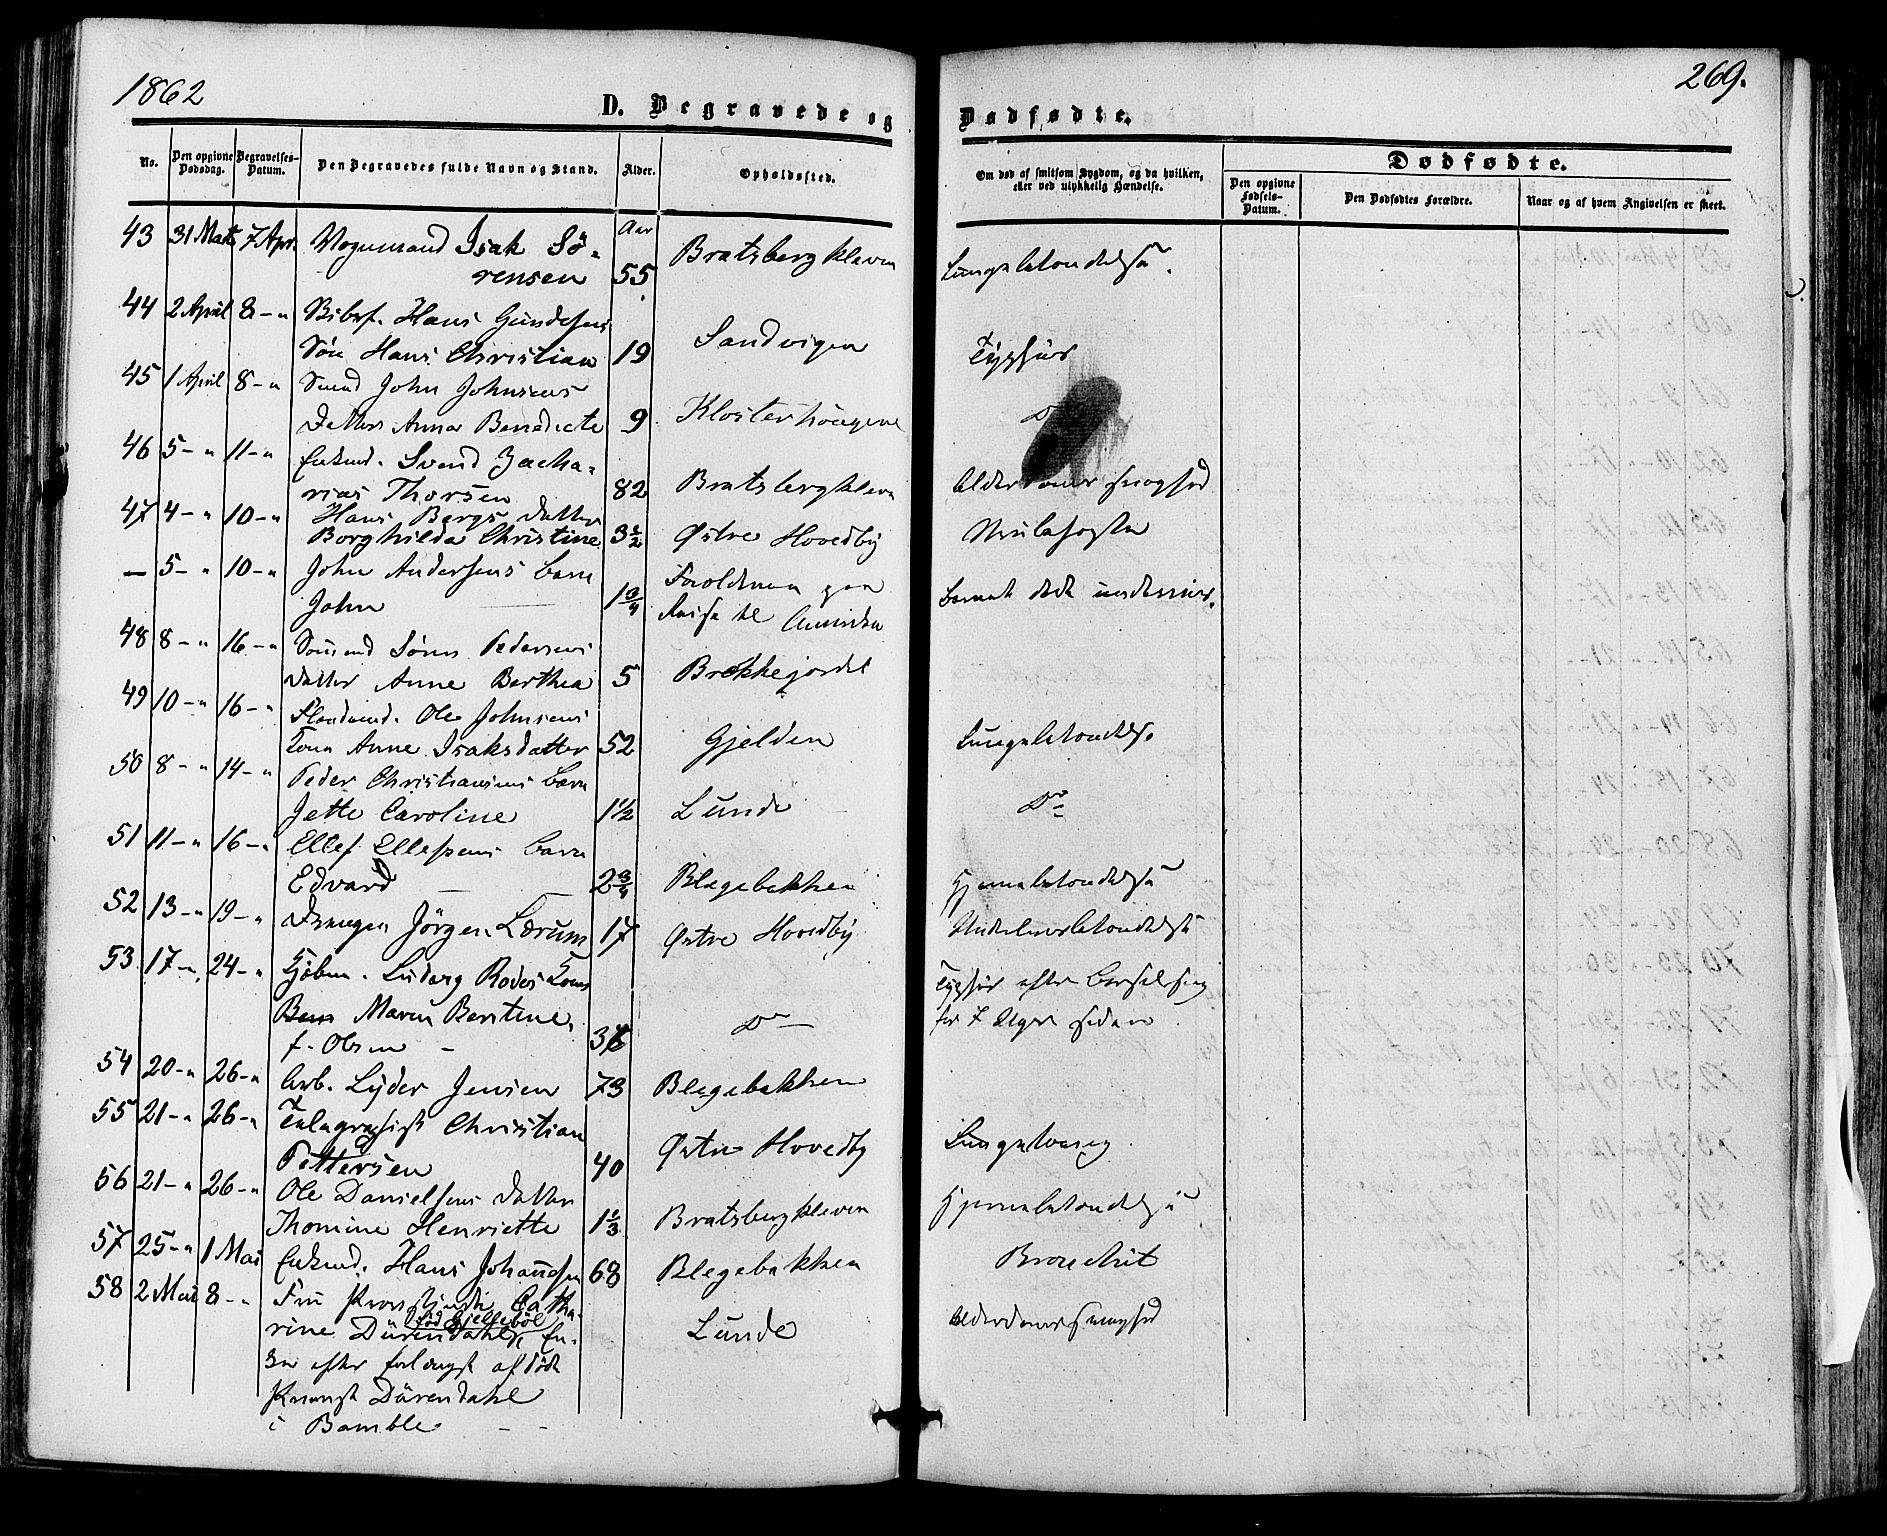 1862
269.
D. Begravede og Dødfødte.
No.
Den opgivne Dødsdag.
Begravelses-Datum.
Den Begravedes fulde Navn og Stand.
Alder.
Opholdssted.
Om død af smitsom Sygdom, og da hvilken, eller ved ulykkelig Hændelse.
Dødfødte.
Den opgivne Fødsels-Datum.
Den Dødfødtes Forældre.
Naar og af hvem Angivelsen er skeet.
Aar
43 31 Marts 7 Apr. Vognmand Isak Sö-
rensen 55 Bratsbergkleven Lungebetændelse.
44 2 April 8 - " Hans Gundersens
Sön Hans Christian 19 Sandvigen Typhüs
45 1 April 8 - " John Johnsens
Datter Anna Benedicte 9 Klosterhougene D
46 5 - " 11 - " Enkmd. Svend Zacha-
rias Thorsen 82 Bratsbergkleven Alderdomssvaghed
47 4 - " 10 - " Hans Bergs Datter
Borghilda Christine 3½ Østre Hovedby
— 5 - " 10 - " John Andersens Barn
John 1¾ paa
Reise til Amerika Barnet døde underveis.
48 8 - " 16 - " Sömd. Sören Pedersens
Datter Anne Berthea 5 Brekkejordet
49 10 - " 16 - " Ole Johnsens
Kone Anne Isaksdatter 52 Gjelden Lungebetændels.
50 8 - " 14 - " Peder Christiansens Barn
Jette Caroline 1½ Lunde Do
51 11 - " 16 - " Ellef Ellefsens Barn
Edvard 2¾ Blegebakken Hjernebetændelse
52 13 - " 19 - " Drengen Jörgen Lærum 17 Østre Hovedby Underlivsbetændelse
53 17 - " 24 - " Kjöbm. Ludvig Rodes Kone
Maren Berntine,
f. Olsen 36 Do Typhüs efter Barselseng
for 7 Uger siden
54 20 - " 26 - " Arb. Lyder Jensen 73 Blegebakken
55 21 - " 26 - " Telegrafist Christian
Pettersen 40 Østre Hovedby Lungetæring
56 21 - " 26 - " Ole Danielsens Datter
Thomine Henriette 1⅓ Bratsbergkleven Hjernebetændelse
57 25 - " 1 Mai Enkmd. Hans Johansen 68 Blegebakken Bronchit
58 2 Mai 8 - " Fru Provstinde Catha-
född Gjellebøl
rine Dürendahl, En-
ke efter forlængst afdöde
Provst Dürendahl
i Bamble Lunde Alderdomssvaghed